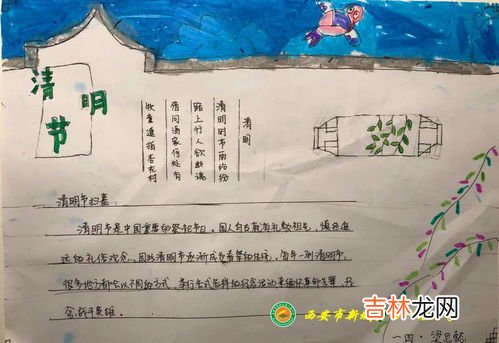 清明节
清明
清明时节雨纷纷
路上行人欲断魂
借问酒家何处有
牧童遥指杏花村
清明节扫墓：
清明节是中国重要的祭祀节日。国人自古就有礼敬祖先、慎终追
远的礼俗观念，因此清明节逐渐成为 每年一到清明节，
很多地方都会以不同的方式，举行各式各样的纪念活动来缅怀革命先辈，纪
念战斗英雄。
西安市新
吉林龙网
一四·梁思